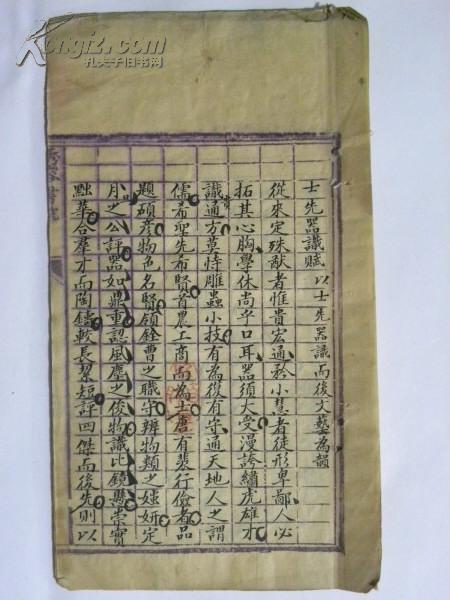 Kongfz.com
孔夫子旧书网
士先器識賦 以士先器識而後文藝為韻
從來定殊猷者惟貴宏通矜小慧者徒形卑鄙人必
拓其心胸學休尚乎口耳器須大受漫誇繡虎雄才
識通方莫恃雕蟲小技有為後有守通天地人之謂
儒希聖先希賢首農工商而為士唐有裴行儉者品
題碩彥物色名賢領銓曹之職守辨物類之媸妍定
月之公評器如鼎重認風塵之俊物識比鏡懸崇實
黜華合羣才而陶鑄較長絜短評四傑而後先則以